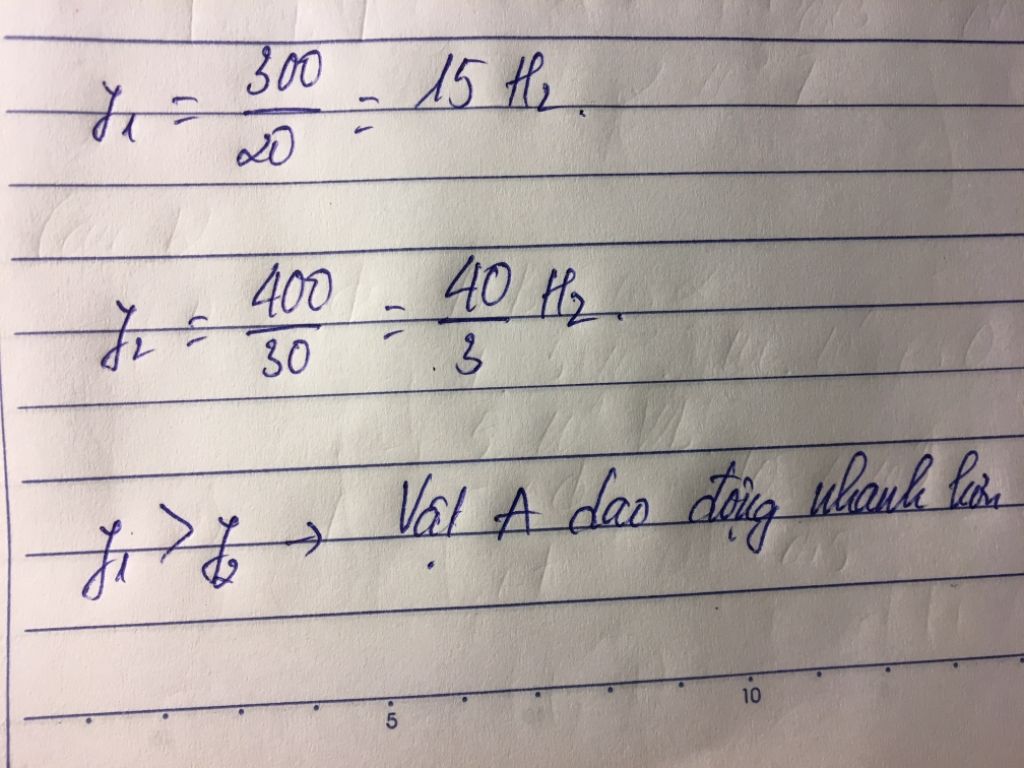 f1 = 300/20 = 15 Hz.
f2 = 400/30 = 40/3 Hz.
f1 > f2 → Vật A dao động nhanh hơn
5 10